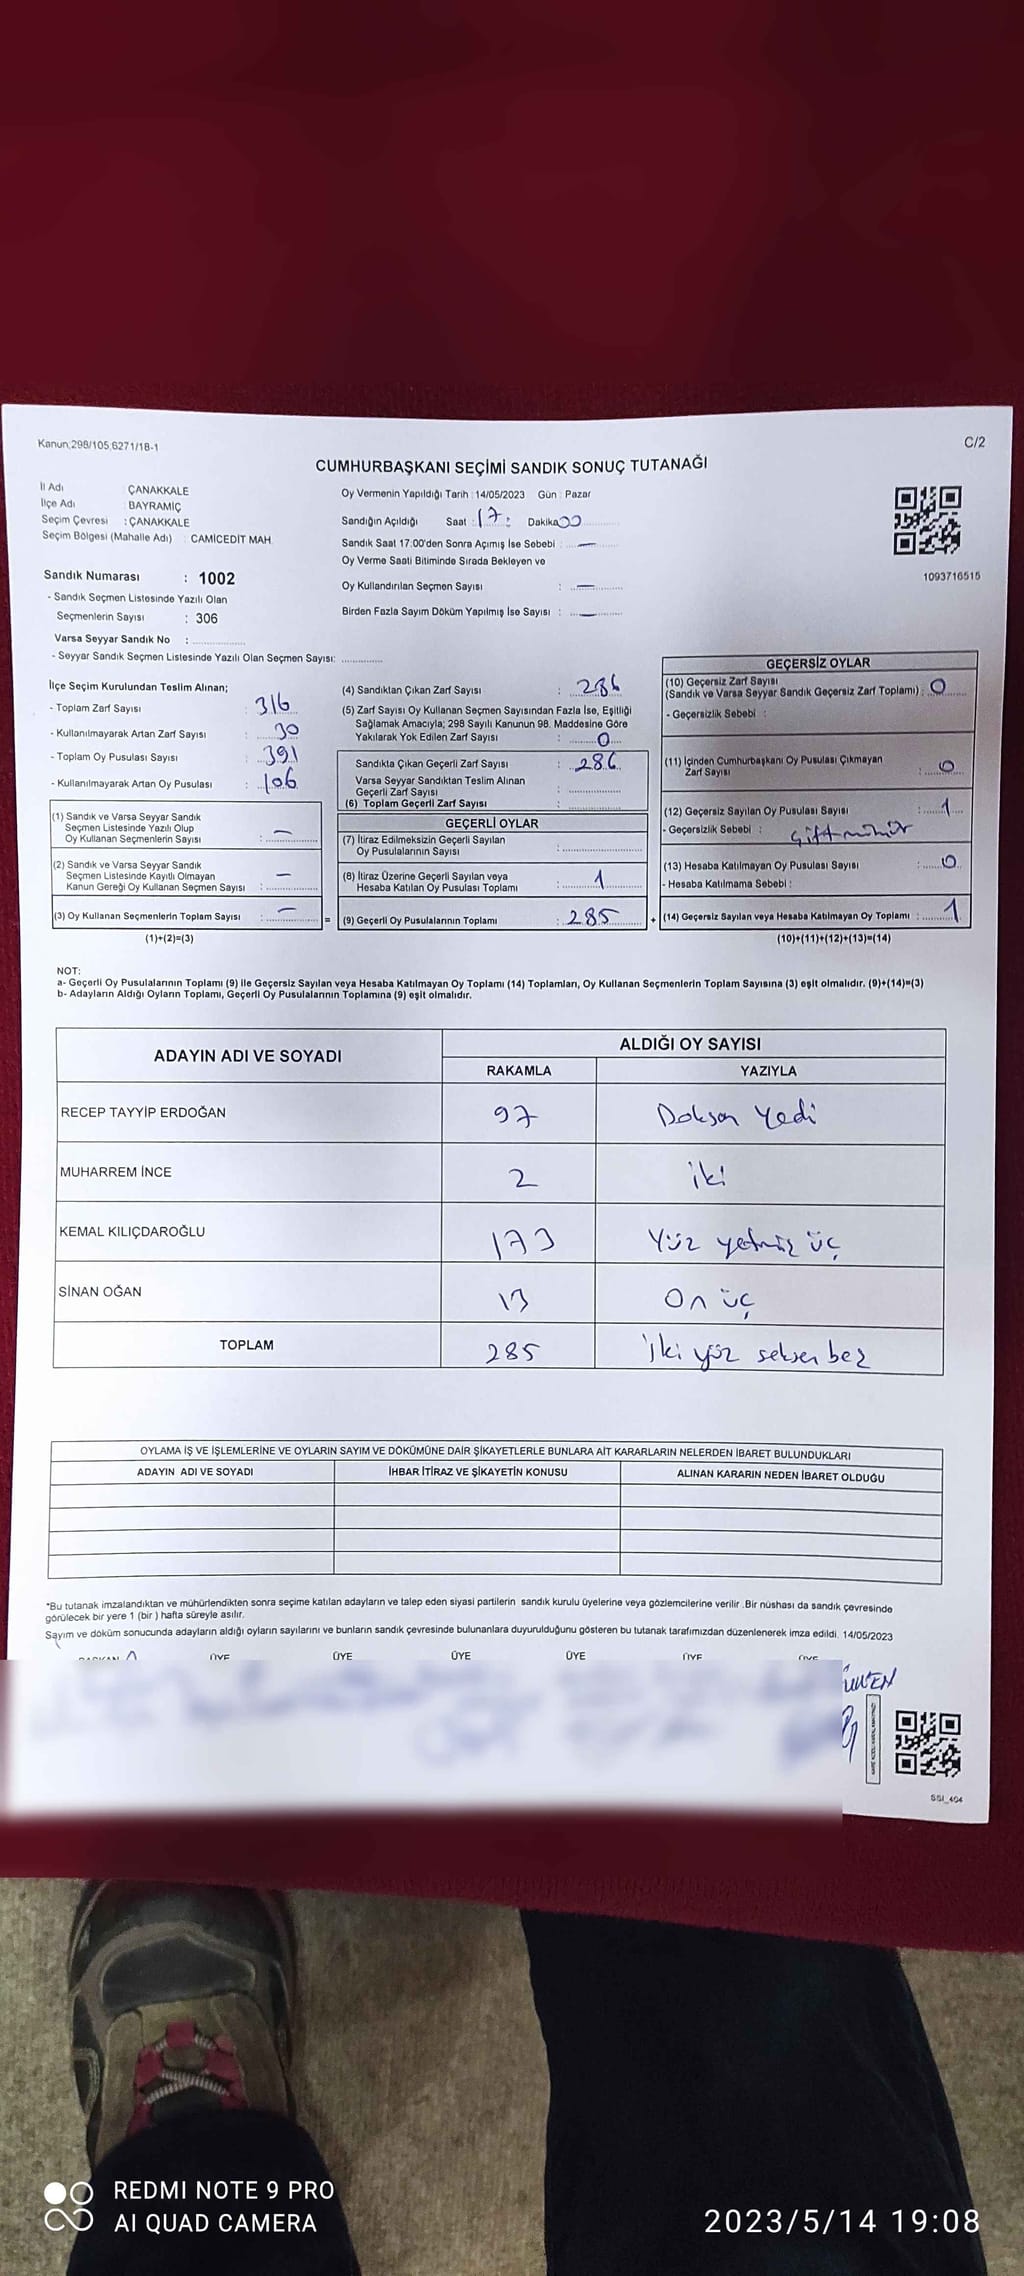 Kanun,298/105,6271/18-1
C/2
CUMHURBAŞKANI SEÇİMİ SANDIK SONUÇ TUTANAĞI
İl Adı : ÇANAKKALE
İlçe Adı : BAYRAMİÇ
Seçim Çevresi : ÇANAKKALE
Seçim Bölgesi (Mahalle Adı) : CAMİCEDİT MAH.
Sandık Numarası : 1002
- Sandık Seçmen Listesinde Yazılı Olan
Seçmenlerin Sayısı : 306
Varsa Seyyar Sandık No :
- Seyyar Sandık Seçmen Listesinde Yazılı Olan Seçmen Sayısı:
Oy Vermenin Yapıldığı Tarih : 14/05/2023 Gün : Pazar
Sandığın Açıldığı Saat : 17 : Dakika 00
Sandık Saat 17.00'den Sonra Açımış İse Sebebi : —
Oy Verme Saati Bitiminde Sırada Bekleyen ve
Oy Kullandırılan Seçmen Sayısı : —
Birden Fazla Sayım Döküm Yapılmış İse Sayısı : —
1093716515
İlçe Seçim Kurulundan Teslim Alınan;
- Toplam Zarf Sayısı : 316
- Kullanılmayarak Artan Zarf Sayısı : 30
- Toplam Oy Pusulası Sayısı : 391
- Kullanılmayarak Artan Oy Pusulası : 106
(1) Sandık ve Varsa Seyyar Sandık
Seçmen Listesinde Yazılı Olup
Oy Kullanan Seçmenlerin Sayısı : —
(2) Sandık ve Varsa Seyyar Sandık
Seçmen Listesinde Kayıtlı Olmayan
Kanun Gereği Oy Kullanan Seçmen Sayısı : —
(3) Oy Kullanan Seçmenlerin Toplam Sayısı : — =
(1)+(2)=(3)
(4) Sandıktan Çıkan Zarf Sayısı : 286
(5) Zarf Sayısı Oy Kullanan Seçmen Sayısından Fazla İse, Eşitliği
Sağlamak Amacıyla; 298 Sayılı Kanunun 98. Maddesine Göre
Yakılarak Yok Edilen Zarf Sayısı : 0
Sandıkta Çıkan Geçerli Zarf Sayısı : 286
Varsa Seyyar Sandıktan Teslim Alınan
Geçerli Zarf Sayısı :
(6) Toplam Geçerli Zarf Sayısı :
GEÇERLİ OYLAR
(7) İtiraz Edilmeksizin Geçerli Sayılan
Oy Pusulalarının Sayısı :
(8) İtiraz Üzerine Geçerli Sayılan veya
Hesaba Katılan Oy Pusulası Toplamı : 1
(9) Geçerli Oy Pusulalarının Toplamı : 285 +
GEÇERSİZ OYLAR
(10) Geçersiz Zarf Sayısı
(Sandık ve Varsa Seyyar Sandık Geçersiz Zarf Toplamı) : 0
- Geçersizlik Sebebi :
(11) İçinden Cumhurbaşkanı Oy Pusulası Çıkmayan
Zarf Sayısı : 0
(12) Geçersiz Sayılan Oy Pusulası Sayısı : 1
- Geçersizlik Sebebi : Çift mühür
(13) Hesaba Katılmayan Oy Pusulası Sayısı : 0
- Hesaba Katılmama Sebebi :
(14) Geçersiz Sayılan veya Hesaba Katılmayan Oy Toplamı : 1
(10)+(11)+(12)+(13)=(14)
NOT:
a- Geçerli Oy Pusulalarının Toplamı (9) ile Geçersiz Sayılan veya Hesaba Katılmayan Oy Toplamı (14) Toplamları, Oy Kullanan Seçmenlerin Toplam Sayısına (3) eşit olmalıdır. (9)+(14)=(3)
b- Adayların Aldığı Oyların Toplamı, Geçerli Oy Pusulalarının Toplamına (9) eşit olmalıdır.
ADAYIN ADI VE SOYADI ALDIĞI OY SAYISI
RAKAMLA YAZIYLA
RECEP TAYYİP ERDOĞAN 97 Doksan Yedi
MUHARREM İNCE 2 iki
KEMAL KILIÇDAROĞLU 173 Yüz yetmiş üç
SİNAN OĞAN 13 On üç
TOPLAM 285 İki yüz seksen beş
OYLAMA İŞ VE İŞLEMLERİNE VE OYLARIN SAYIM VE DÖKÜMÜNE DAİR ŞİKAYETLERLE BUNLARA AİT KARARLARIN NELERDEN İBARET BULUNDUKLARI
ADAYIN ADI VE SOYADI İHBAR İTİRAZ VE ŞİKAYETİN KONUSU ALINAN KARARIN NEDEN İBARET OLDUĞU
*Bu tutanak imzalandıktan ve mühürlendikten sonra seçime katılan adayların ve talep eden siyasi partilerin sandık kurulu üyelerine veya gözlemcilerine verilir .Bir nüshası da sandık çevresinde
görülecek bir yere 1 (bir ) hafta süreyle asılır.
Sayım ve döküm sonucunda adayların aldığı oyların sayılarını ve bunların sandık çevresinde bulunanlara duyurulduğunu gösteren bu tutanak tarafımızdan düzenlenerek imza edildi. 14/05/2023
BAŞKAN ÜYE ÜYE ÜYE ÜYE ÜYE ÜYE
SSI_404
REDMI NOTE 9 PRO
AI QUAD CAMERA
2023/5/14 19:08